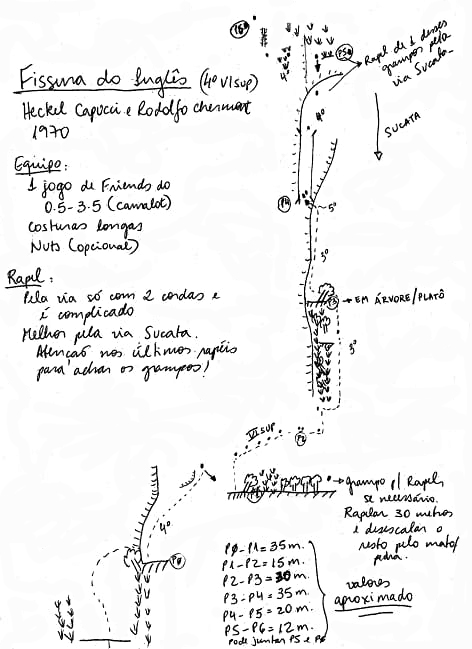 Fissura do Inglês (4º VI SUP)
Heckel Capucci e Rodolfo chermont
1970
Equipo:
1 jogo de Friends do
0.5-3.5 (camalot)
costuras longas
Nuts (opcional)
Rapel:
Pela via só com 2 cordas e
é complicado
Melhor pela via Sucata.
Atenção nos últimos rapéis
para achar os grampos!
P5
Rapel de 1 desses
grampos pela
via Sucata
SUCATA
4º
4º
P4
5º
5º
P3
EM ÁRVORE/PLATÔ
3º
VI SUP
P2
P1
grampo p/ Rapel,
se necessário.
Rapelar 30 metros
e desescalar o
resto pelo mato/
pedra.
4º
PØ
PØ-P1=35m.
P1-P2=15m.
P2-P3=30m.
P3-P4=35m.
P4-P5=20m.
P5-P6=12m.
Pode juntar P5 e P6
valores
aproximado